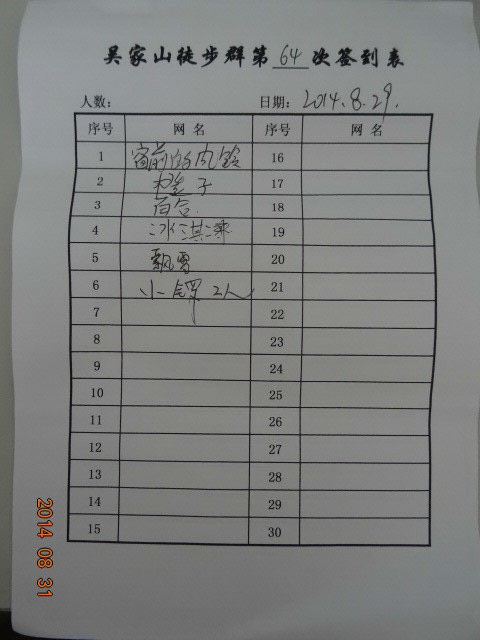 吴家山徒步群第64次签到表
人数: 日期: 2014.8.29.
序号 网名 序号 网名
1 窗前的风铃 16
2 橙子 17
3 百合 18
4 冰淇淋 19
5 飘雪 20
6 小锣 2人 21
7 22
8 23
9 24
10 25
11 26
12 27
13 28
14 29
15 30
2014 08 31